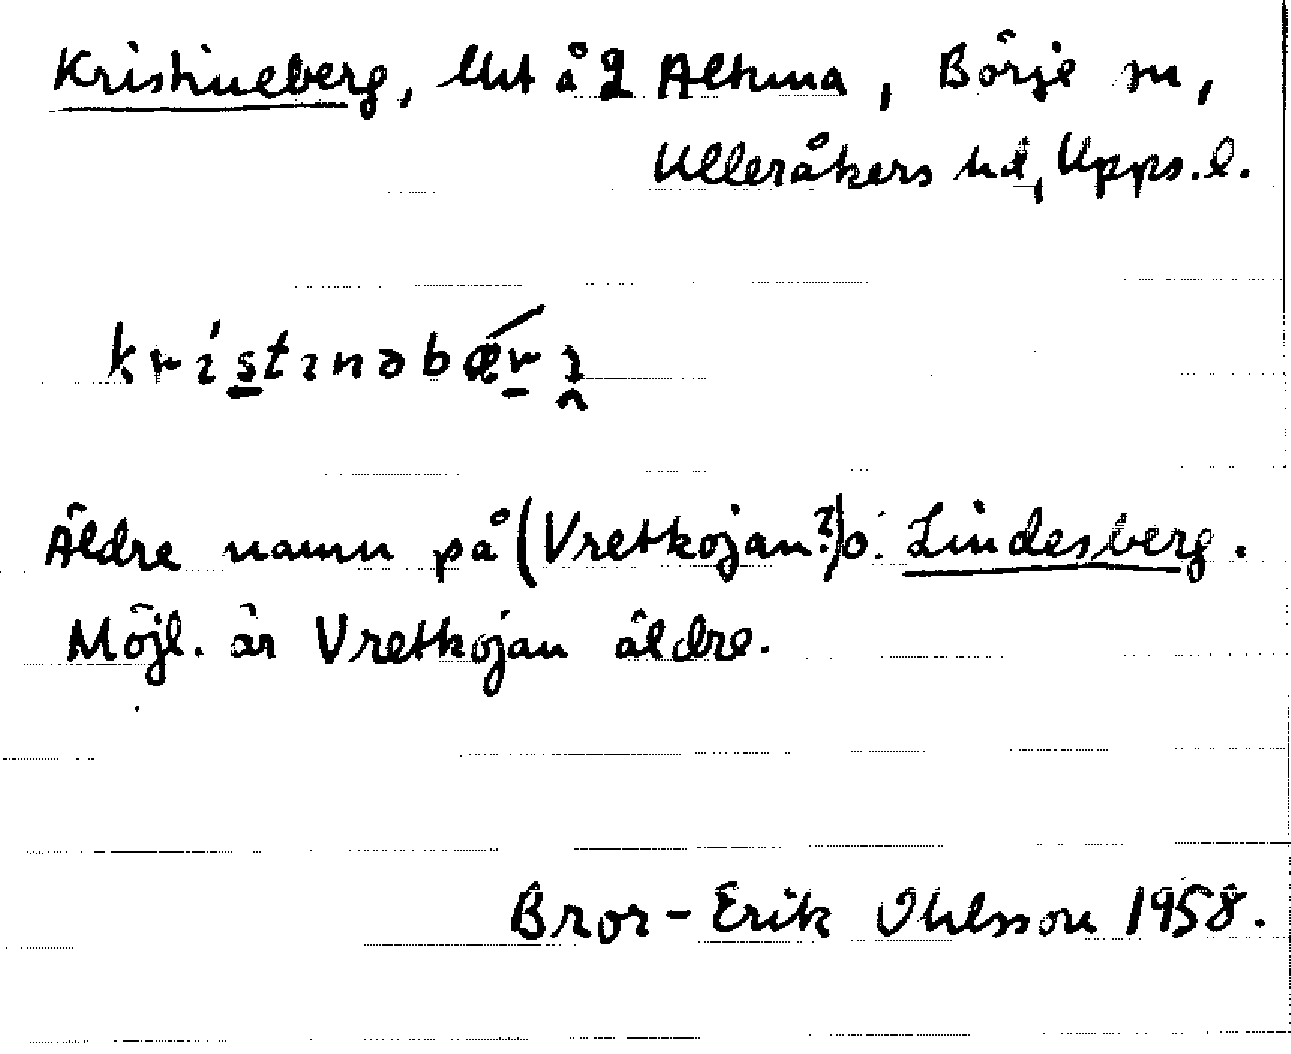 Kristineberg, lht å 2 Altuna, Börje sn,
Ulleråkers hd, Upps. l.
kristinəbærı
Äldre namn på (Vretkojan?) o. Lindesberg.
Möjl. är Vretkojan äldre.
Bror-Erik Ohlsson 1958.